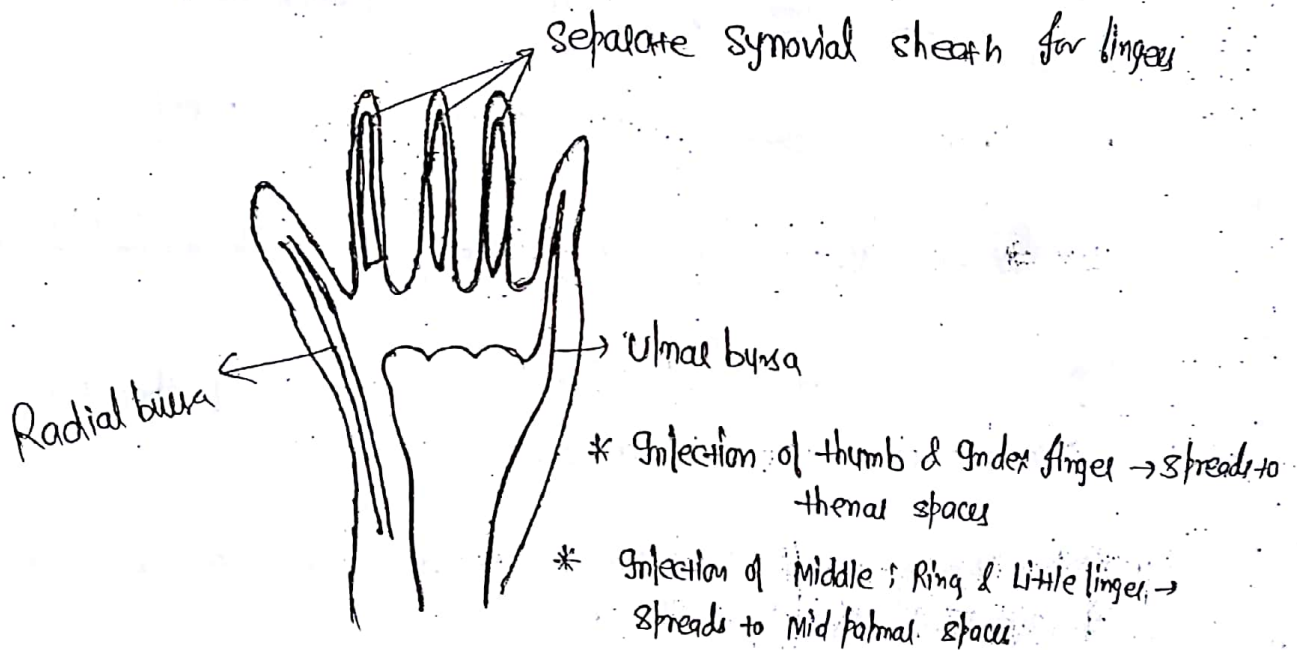 Separate synovial sheath for fingers
Ulnar bursa
Radial bursa
* Infection of thumb & Index finger → spreads to
thenar spaces
* Infection of Middle ; Ring & Little finger →
spreads to Mid palmar spaces